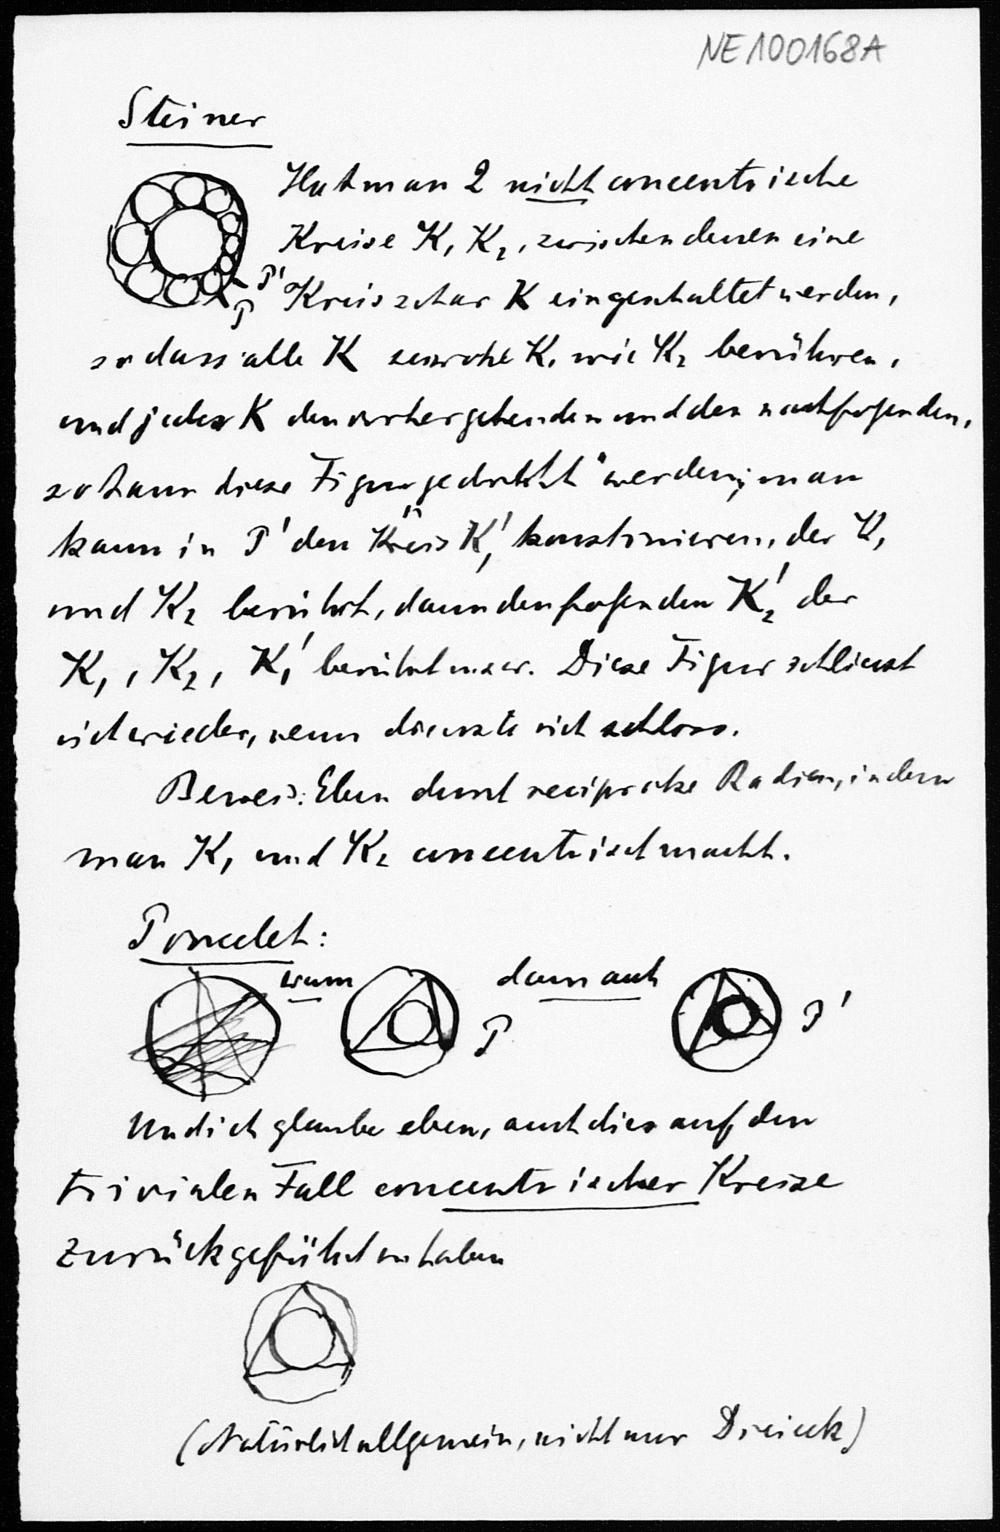 NE100168A
Steiner
Hat man 2 nicht concentrische
Kreise K₁ K₂, zwischen denen eine
P' Kreisschar K eingeschaltet werden,
P
sodass alle K sowohl K₁ wie K₂ berühren,
und jeder K den vorhergehenden und den nachfolgenden,
so kann diese Figur "gedreht" werden; man
kann in P' den Kreis K₁' konstruieren, der K₁
und K₂ berührt, dann den folgenden K₂' der
K₁, K₂, K₁' berührt usw. Diese Figur schliesst
sich wieder, wenn die erste sich schloss.
Beweis: Eben durch reciproke Radien, indem
man K₁ und K₂ concentrisch macht.
Poncelet:
wenn dann auch
P P'
Und ich glaube eben, auch dies auf den
trivialen Fall concentrischer Kreise
zurückgeführt zu haben
(Natürlich allgemein, nicht nur Dreieck)